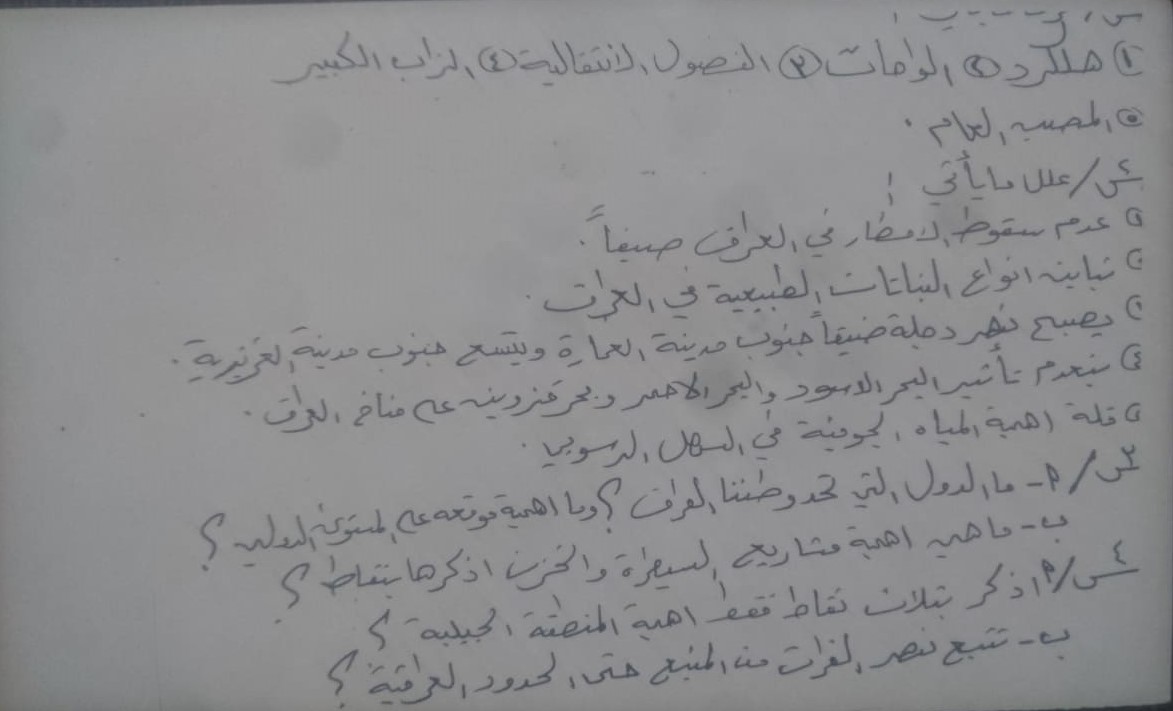 ① هلكرد ② الواحات ③ الفصول الانتقالية ④ الزاب الكبير
⑤ المصب العام .
س٢/ علل ما يأتي :
١) عدم سقوط الامطار في العراق صيفاً .
٢) تباين انواع النباتات الطبيعية في العراق .
٣) يصبح نهر دجلة ضيقاً جنوب مدينة العمارة ويتسع جنوب مدينة العزيزية .
٤) ينعدم تأثير البحر الاسود والبحر الاحمر وبحر قزوين على مناخ العراق .
٥) قلة اهمية المياه الجوفية في السهل الرسوبي .
س٣/ A- ما الدول التي تحد وطننا العراق ؟ وما اهمية موقعه على المستوى الدولي ؟
ب- ما هي اهمية مشاريع السيطرة والخزن اذكرها بنقاط ؟
س٤/ A اذكر بثلاث نقاط فقط اهمية المنطقة الجبلية ؟
ب- تتبع نهر الفرات من المنبع حتى الحدود العراقية ؟